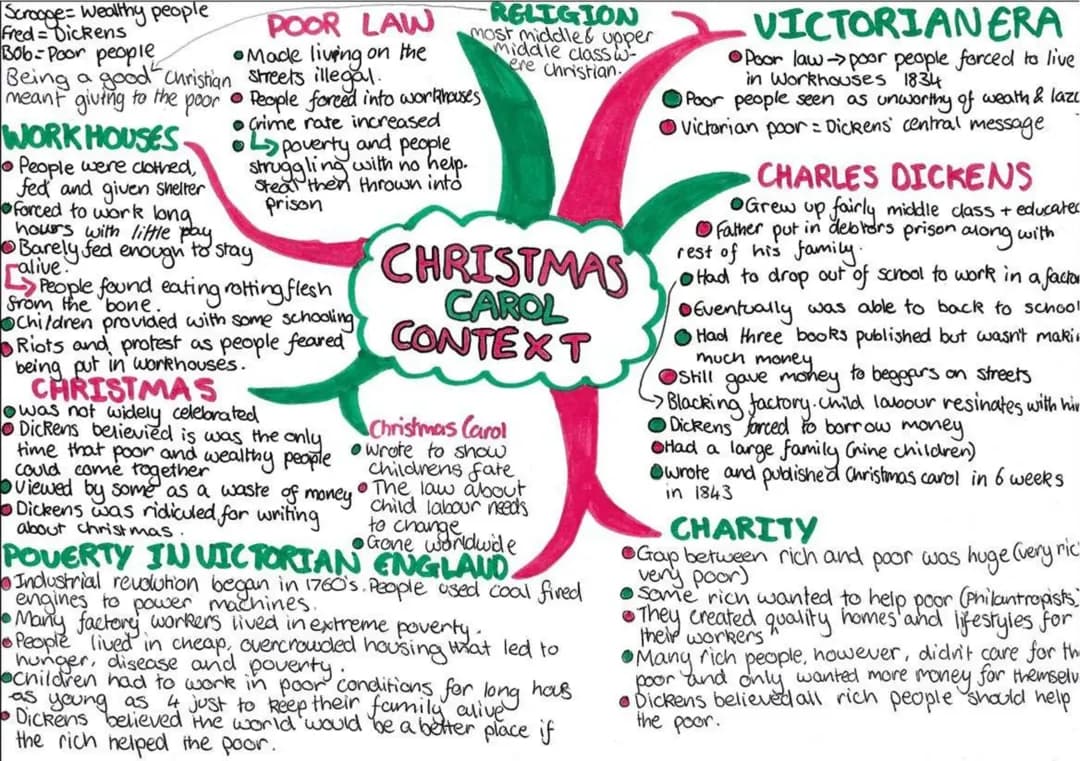 Scrooge= Wealthy people
Fred= Dickens
Bob= Poor people
Being a good Christian
meant giving to the poor
POOR LAW
Made living on the
streets illegal.
People forced into workhouses
Crime rate increased
poverty and people
struggling with no help.
steal then thrown into
prison
RELIGION
most middle & upper
middle class w-
ere Christian.
VICTORIAN ERA
Poor law → poor people forced to live
in workhouses 1834
Poor people seen as unworthy of weath &
Victorian poor = Dickens' central message
WORKHOUSES
People were clothed,
fed and given shelter
forced to work long
hours with little pay
Barely fed enough to stay
alive.
People found eating rotting flesh
from the bone.
Children provided with some schooling
Riots and protest as people feared
being put in workhouses.
CHARLES DICKENS
Grew up fairly middle class + educated
Father put in debtors prison along with
rest of his family.
Had to drop out of school to work in a
Eventually was able to back to school
Had three books published but wasn't
much money
Still gave money to beggars on streets
Blacking factory. child labour resinates with
Dickens forced to borrow money
Had a large family (nine children)
wrote and published Christmas carol in 6 weeks
in 1843
CHRISTMAS CAROL CONTEXT
CHRISTMAS
was not widely celebrated
Dickens believied is was the only
time that poor and wealthy people
could come together
Viewed by some as a waste of money
Dickens was ridiculed for writing
about christmas.
Christmas Carol
Wrote to show
childrens fate
The law about
child labour needs
to change
Gone worldwide
POVERTY IN VICTORIAN ENGLAND
Industrial revolution began in 1760's. People used coal fired
engines to power machines.
Many factory workers lived in extreme poverty.
People lived in cheap, overcrowded housing that led to
hunger, disease and poverty.
Children had to work in poor conditions for long hous
as young as 4 just to keep their family alive
Dickens believed the world would be a better place if
the rich helped the poor.
CHARITY
Gap between rich and poor was huge (very
very poor)
Some rich wanted to help poor (Philantropists)
They created quality homes and lifestyles for
their workers
Many rich people, however, didn't care for
poor and only wanted more money for
Dickens believed all rich people should help
the poor.